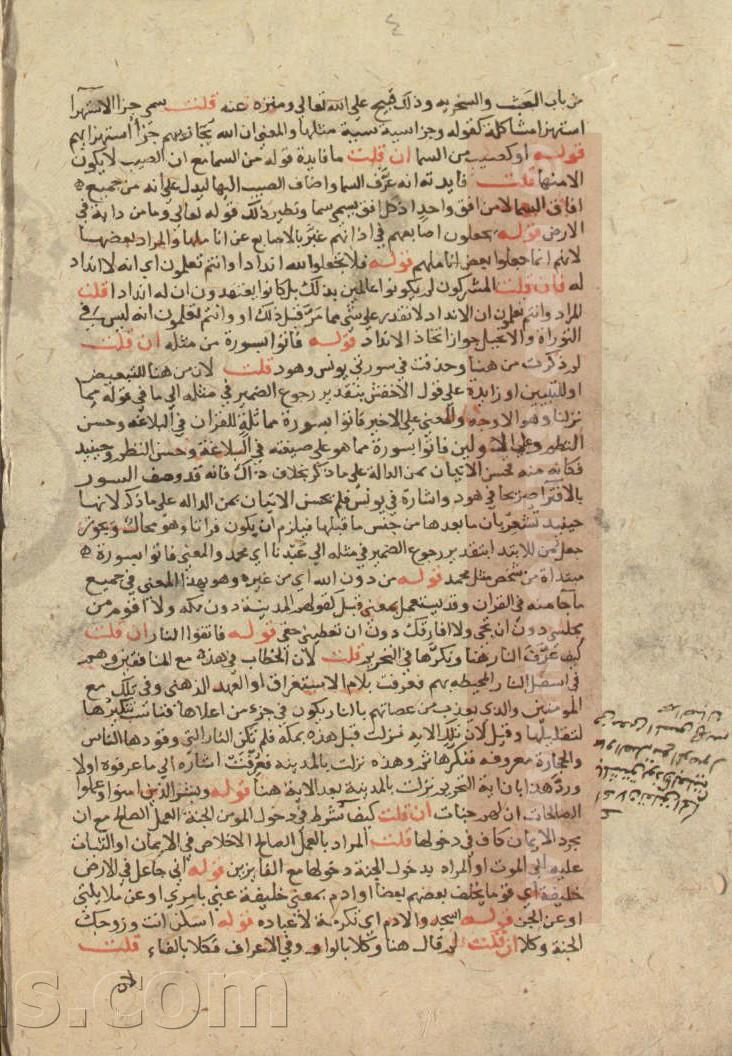 ٤
من باب العبث والسخريه وذلك قبيح على الله تعالى ومنزه عنه قلت سمي جزا الاستهزا
استهزا مشاكلة كقوله وجزا سيية سيية مثلها والمعنى ان الله يجازيهم جزا استهزا بهم
قوله او كصيب من السما ان قلت ما فايدة قوله من السما مع ان الصيب لا يكون
الا منها قلت فايدته انه عرف السما واضاف الصيب اليها ليدل على انه من جميع
افاق السما لا من افق واحد اذ كل افق يسمى سما ونظير ذلك قوله تعالى وما من دابة في
الارض قوله يجعلون اصابعهم في اذانهم عبر بالاصابع عن اناملها والمراد بعضها
لانهم انما جعلوا بعض اناملهم قوله فلا تجعلوا لله اندادا وانتم تعلمون اي انه لا انداد
له فان قلت المشركون لم يكونوا عالمين بذلك بل كانوا يعتقدون ان له اندادا قلت
المراد وانتم تعلمون ان الانداد لا تقدر على شي مما مر قبل ذلك او وانتم تعلمون انه ليس في
التوراة والانجيل جواز اتخاذ الانداد قوله فاتوا بسورة من مثله ان قلت
لم ذكرت من هنا وحذفت في سورتي يونس وهود قلت لان من هنا للتبعيض
او للتبيين او زايدة على قول الاخفش بتقدير رجوع الضمير في مثله الى ما في قوله مما
نزلنا وهو الاوجه والمعنى على الاخير فاتوا بسورة مماثلة للقران في البلاغه وحسن
النظم وعلى الاولين فاتوا بسورة مما هو على صيغته في البلاغة وحسن النظم وحينيذ
فكانه منه فحسن الاتيان بمن الدالة على ما ذكر بخلاف ذاك فانه قد وصف السور
بالافترا صريحا في هود واشارة في يونس فلم يحسن الاتيان بمن الداله على ما ذكر لانها
حينيذ تشعر بان ما بعدها من جنس ما قبلها فيلزم ان يكون قرانا وهو محال ويجوز
جعل من للابتدا بتقدير رجوع الضمير في مثله الى عبدنا اي محمد والمعنى فاتوا بسورة
مبتداة من شخص مثل محمد قوله من دون الله اي من غيره وهو بهذا المعنى في جميع
ما جا منه في القران وقد يستعمل بمعنى قبل كقولهم المدينة دون مكه ولا اقوم من
مجلسي دون ان تجي ولا افارقك دون ان تعطيني حقي قوله فاتقوا النار ان قلت
كيف عرف النار هنا ونكرها في التحريم قلت لان الخطاب في هذه مع المنافقين وهم
في اسفل النار المحيطه بهم فعرفت بلام الاستغراق او العهد الذهني وفي تلك مع
المومنين والذي يعذب من عصاتهم بالنار يكون في جزء من اعلاها فناسب تنكيرها
لتقليلها وقيل لان تلك الاية نزلت قبل هذه بمكة فلم تكن النار التي وقودها الناس
والحجارة معروفه فنكرها ثم وهذه نزلت بالمدينه فعرفت اشارة الى ما عرفوه اولا
ورد هذا بان اية التحريم نزلت بالمدينة بعد الاية هنا قوله وبشر الذين امنوا وعملوا
الصالحات ان لهم جنات ان قلت كيف شرط في دخول المومن الجنة العمل الصالح مع ان
مجرد الايمان كاف في دخولها قلت المراد بالعمل الصالح الاخلاص في الايمان او الثبات
عليه الى الموت او المراد بدخول الجنة دخولها مع الفايزين قوله اني جاعل في الارض
خليفة اي قوما يخلف بعضهم بعضا او ادم بمعنى خليفة عني بامري او عن ملايكتي
او عن الجن قوله اسجدوا لادم اي تكرمة لا عباده قوله اسكن انت وزوجك
الجنة وكلا ان قلت لم قال هنا وكلا بالواو وفي الاعراف فكلا بالفاء قلت
لان
s.com